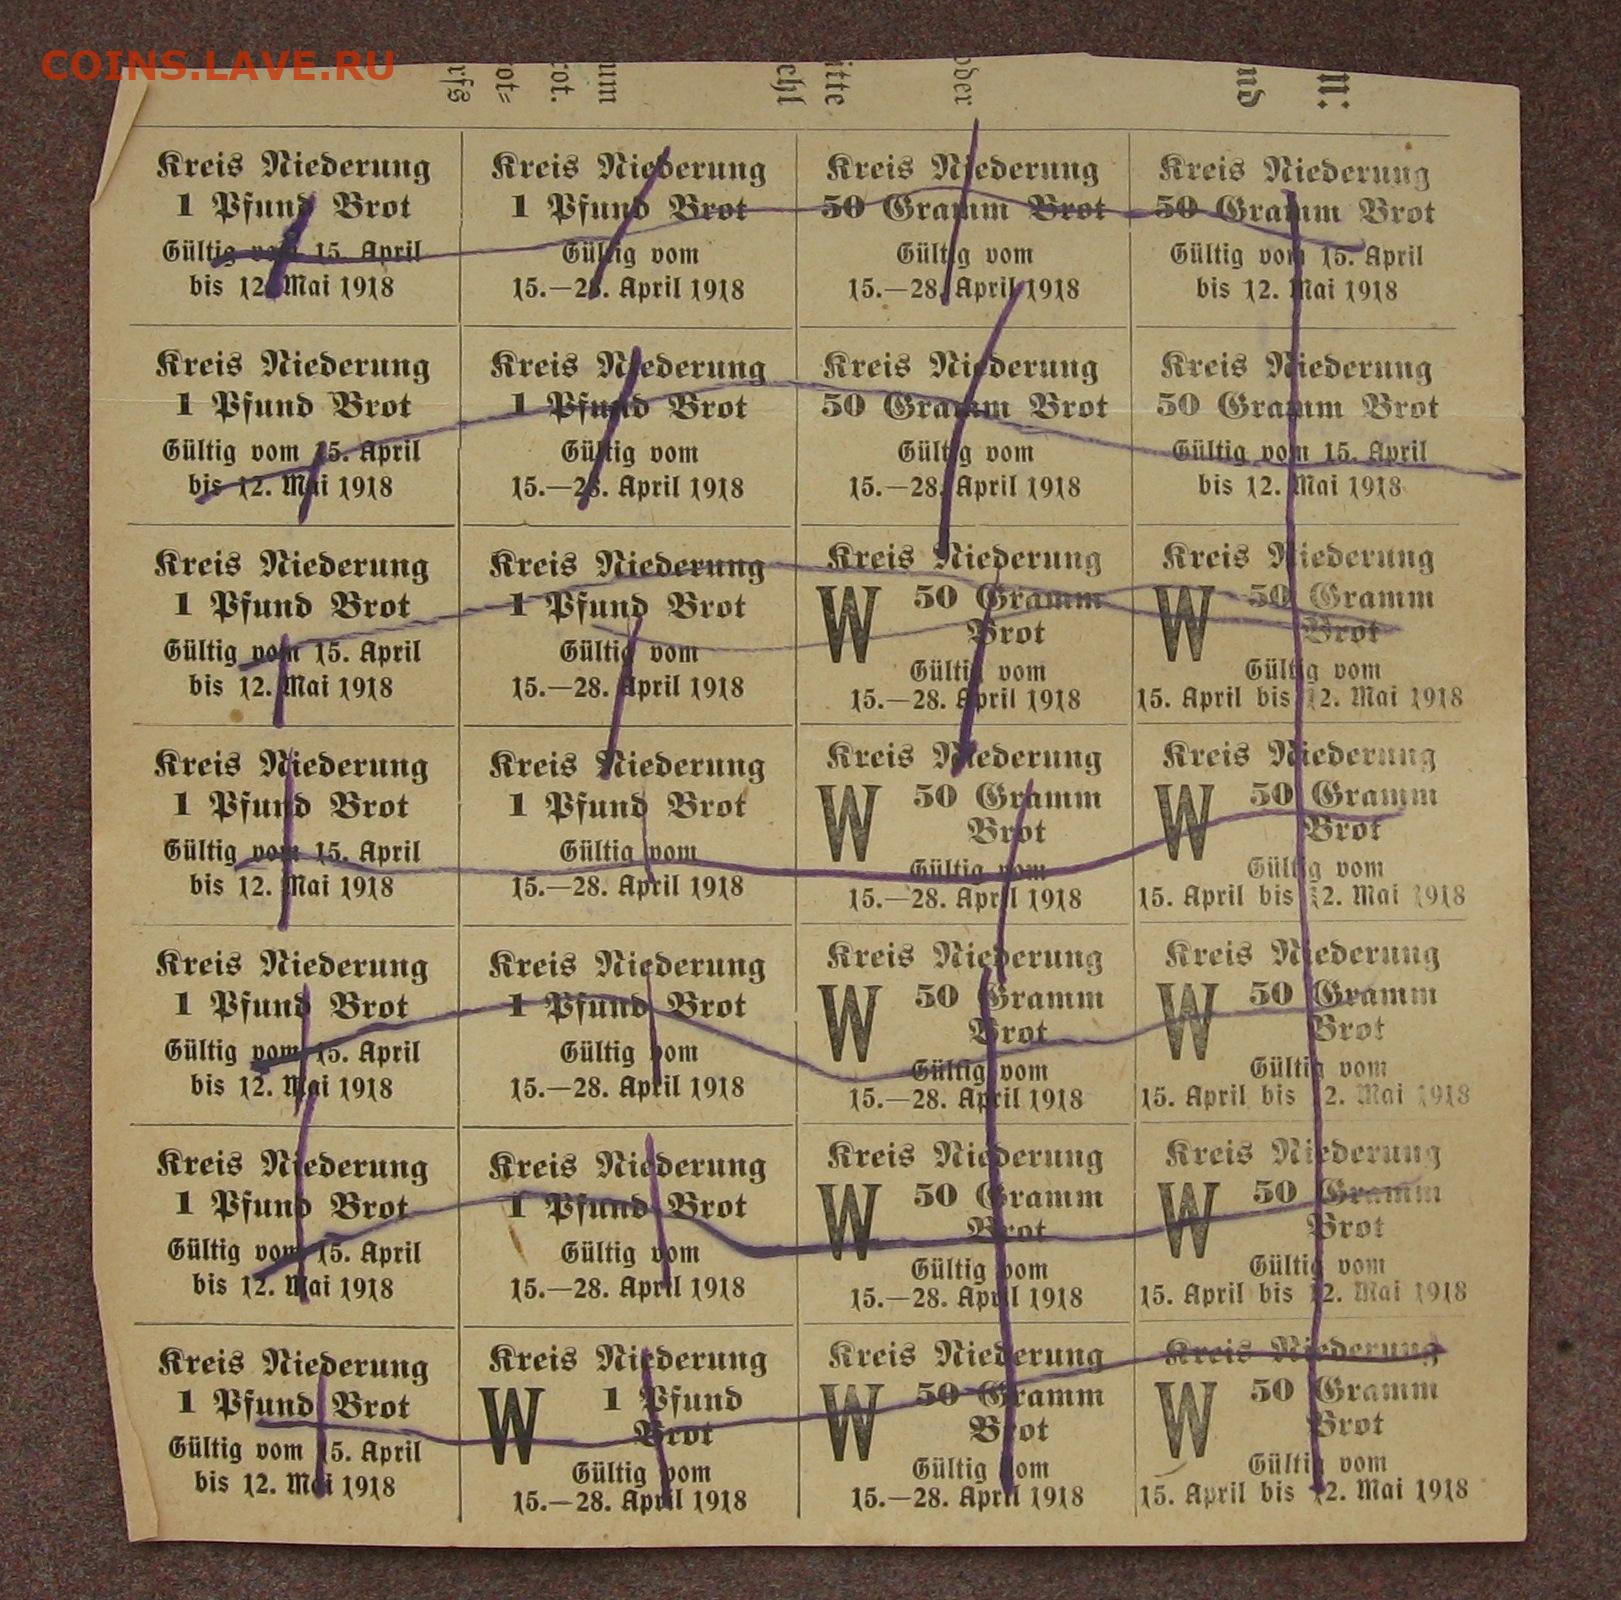 COINS.LAVE.RU
Kreis Niederung
1 Pfund Brot
Gültig vom 15. April
bis 12. Mai 1918
Kreis Niederung
1 Pfund Brot
Gültig vom
15.—28. April 1918
Kreis Niederung
50 Gramm Brot
Gültig vom
15.—28. April 1918
Kreis Niederung
50 Gramm Brot
Gültig vom 15. April
bis 12. Mai 1918
Kreis Niederung
1 Pfund Brot
Gültig vom 15. April
bis 12. Mai 1918
Kreis Niederung
1 Pfund Brot
Gültig vom
15.—28. April 1918
Kreis Niederung
50 Gramm Brot
Gültig vom
15.—28. April 1918
Kreis Niederung
50 Gramm Brot
Gültig vom 15. April
bis 12. Mai 1918
Kreis Niederung
1 Pfund Brot
Gültig vom 15. April
bis 12. Mai 1918
Kreis Niederung
1 Pfund Brot
Gültig vom
15.—28. April 1918
Kreis Niederung
W 50 Gramm
Brot
Gültig vom
15.—28. April 1918
Kreis Niederung
W 50 Gramm
Brot
Gültig vom
15. April bis 12. Mai 1918
Kreis Niederung
1 Pfund Brot
Gültig vom 15. April
bis 12. Mai 1918
Kreis Niederung
1 Pfund Brot
Gültig vom
15.—28. April 1918
Kreis Niederung
W 50 Gramm
Brot
Gültig vom
15.—28. April 1918
Kreis Niederung
W 50 Gramm
Brot
Gültig vom
15. April bis 12. Mai 1918
Kreis Niederung
1 Pfund Brot
Gültig vom 15. April
bis 12. Mai 1918
Kreis Niederung
1 Pfund Brot
Gültig vom
15.—28. April 1918
Kreis Niederung
W 50 Gramm
Brot
Gültig vom
15.—28. April 1918
Kreis Niederung
W 50 Gramm
Brot
Gültig vom
15. April bis 12. Mai 1918
Kreis Niederung
1 Pfund Brot
Gültig vom 15. April
bis 12. Mai 1918
Kreis Niederung
1 Pfund Brot
Gültig vom
15.—28. April 1918
Kreis Niederung
W 50 Gramm
Brot
Gültig vom
15.—28. April 1918
Kreis Niederung
W 50 Gramm
Brot
Gültig vom
15. April bis 12. Mai 1918
Kreis Niederung
1 Pfund Brot
Gültig vom 15. April
bis 12. Mai 1918
Kreis Niederung
W 1 Pfund
Brot
Gültig vom
15.—28. April 1918
Kreis Niederung
W 50 Gramm
Brot
Gültig vom
15.—28. April 1918
Kreis Niederung
W 50 Gramm
Brot
Gültig vom
15. April bis 12. Mai 1918